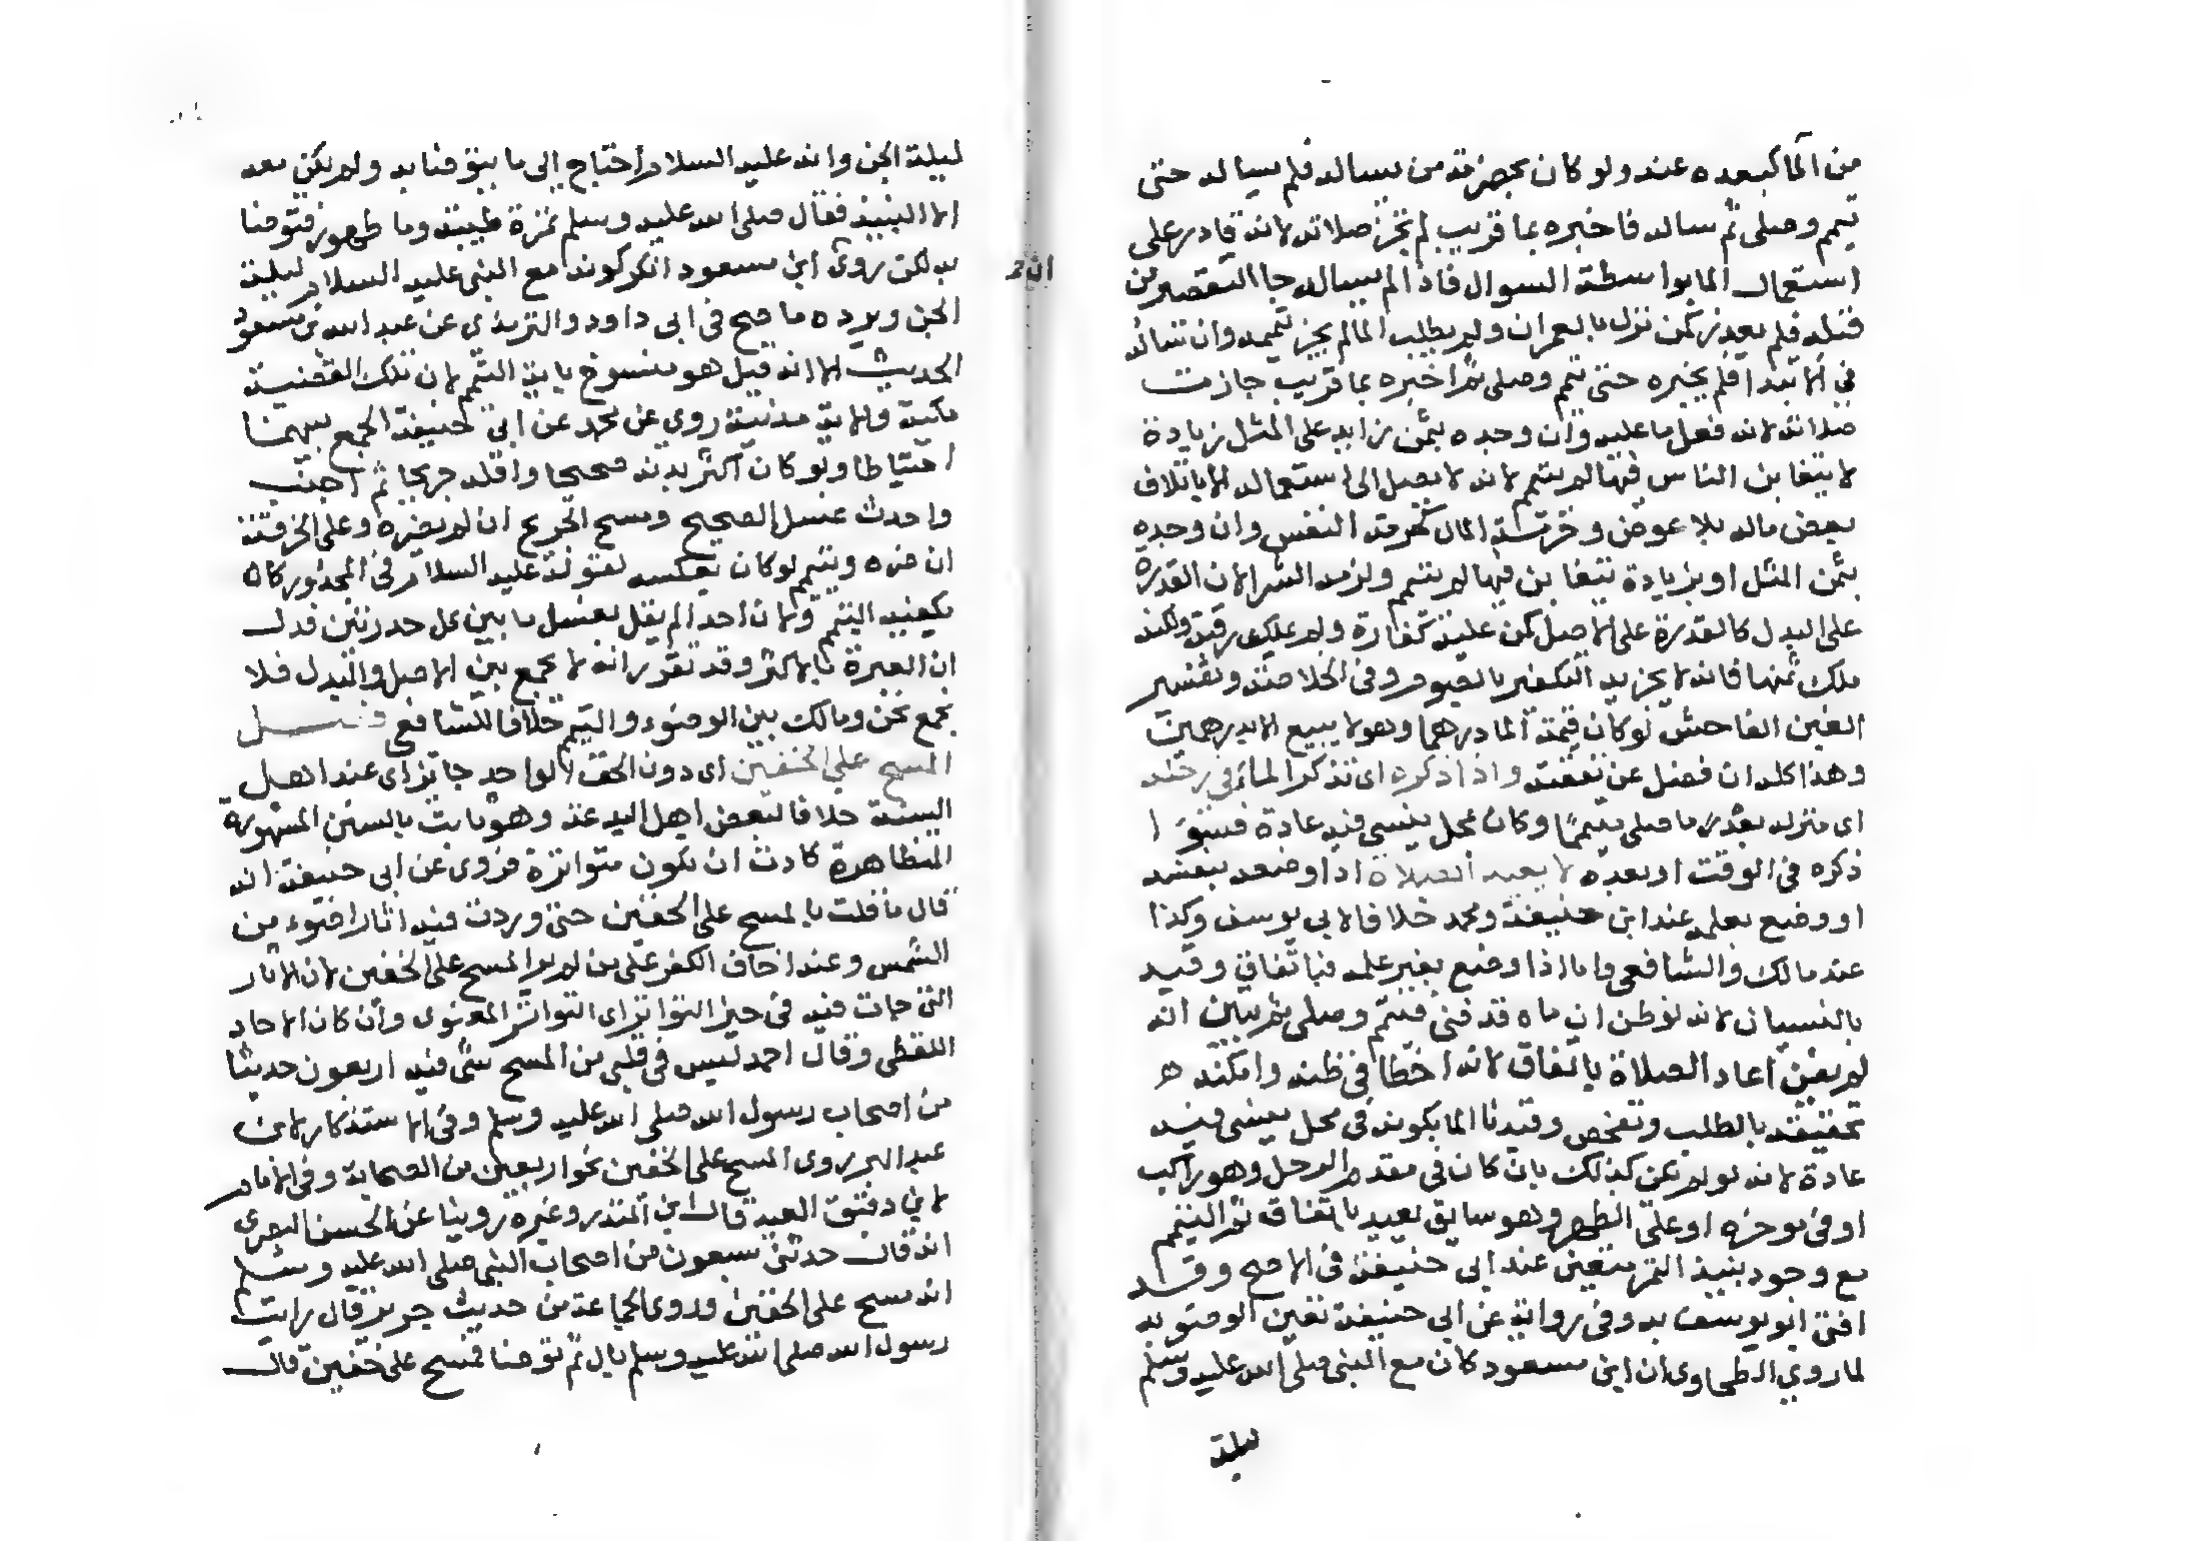 من الما لبعده عنه ولو كان بحضرته من يساله فلم يساله حتى
تيمم وصلى ثم ساله فاخبره بما قريب لم تجز صلاته لانه قادر على
استعمال الما بواسطة السوال فاذا لم يساله جا التقصير من
قبله فلم يعذر كمن نزل بالعمران ولم يطلب الما لم يجز تيممه وان ساله
في الابتدا فلم يخبره حتى تيمم وصلى ثم اخبره بما قريب جازت
صلاته لانه فعل ما عليه وان وجده بثمن زايد على المثل زيادة
لا يتغابن الناس فيها لم يتيمم لانه لا يصل الى استعماله الا باتلاف
بعض ماله بلا عوض وحرمة المال كحرمة النفس وان وجده
بثمن المثل او بزيادة يتغابن فيها لم يتيمم ولزمه الشرا لان القدرة
على البدل كالقدرة على الاصل كمن عليه كفارة ولم يملك رقبة ولكنه
ملك ثمنها فانه لا يجزيه التكفير بالصوم وفي الخلاصة وتفسير
الغبن الفاحش لو كان قيمة الما درهما وهو لا يبيع الا بدرهمين
وهذا كله ان فضل عن نفقته واذا ذكره اى تذكر الماء في رحله
اى منزله بعد ما صلى متيمما وكان محل ينسى فيه عادة فسوا
ذكره في الوقت او بعده لا يعيد الصلاة اذا وضعه بنفسه
او وضع بعلمه عند ابي حنيفة ومحمد خلافا لابي يوسف وكذا
عند مالك والشافعى واما اذا وضع بغير علمه فباتفاق وقيد
بالنسيان لانه لو ظن ان ماه قد فنى فتيمم وصلى ثم تبين انه
لم يفن اعاد الصلاة باتفاق لانه اخطا في ظنه وامكنه
تحقيقه بالطلب وتفحص وقيدنا الما بكونه في محل ينسى فيه
عادة لانه لو لم يكن كذلك بان كان في مقدم الرحل وهو راكب
او في موخره او على الظهر وهو سايق يعيد باتفاق ثم التيمم
مع وجود نبيذ التمر متعين عند ابى حنيفة في الاصح وقد
افتى ابو يوسف به وفي رواية عن ابى حنيفة تعين الوضوء به
لما روي الطحاوى ان ابن مسعود كان مع النبى صلى الله عليه وسلم
ليلة
ليلة الجن وانه عليه السلام احتاج الى ما يتوضا به ولم يكن معه
الا النبيذ فقال صلى الله عليه وسلم تمرة طيبة وما طهور فتوضا
به لكن روى ان ابن مسعود انكر كونه مع النبى عليه السلام ليلة
الجن ويرده ما صح في ابى داود والترمذى عن عبد الله بن مسعود
الحديث الا انه قيل هو منسوخ باية التيمم لان تلك القضية
مكية والاية مدنية روي عن محمد عن ابى حنيفة الجمع بينهما
احتياطا ولو كان اكثر بدنه صحيحا واقله جريحا ثم اجنب
واحدث غسل الصحيح ومسح الجريح ان لم يضره وعلى الخرقة
ان ضره وتيمم لو كان بعكسه لقوله عليه السلام في المجدور كان
يكفيه التيمم ولان احدا لم يقل بغسل ما بين كل جدرتين فدل
ان العبرة بالاكثر وقد تقرر انه لا يجمع بين الاصل والبدل فلا
نجمع نحن ومالك بين الوضوء والتيمم خلافا للشافعى فصل
المسح علي الخفين اى دون الخف الواحد جائز اى عند اهل
السنة خلافا لبعض اهل البدعة وهو ثابت بالسنن المشهورة
المتظاهرة كادت ان يكون متواترة فروى عن ابى حنيفة انه
قال ما قلت بالمسح على الخفين حتى وردت فيه اثار اضوء من
الشمس وعنه اخاف الكفر على من لم ير المسح على الخفين لان الاثار
التى جات فيه في حيز التواتر اى التواتر المعنوى وان كان الاحاد
اللفظى وقال احمد ليس في قلبى من المسح شى فيه اربعون حديثا
من اصحاب رسول الله صلى الله عليه وسلم وفى الاستذكار لابن
عبد البر روى المسح على الخفين نحو اربعين من الصحابة وفى الامام
لابن دقيق العيد قال ابن المنذر وغيره روينا عن الحسن البصرى
انه قال حدثنى سبعون من اصحاب النبى صلى الله عليه وسلم
انه مسح على الخفين وروى الجماعة من حديث جرير قال رايت
رسول الله صلى الله عليه وسلم بال ثم توضا فمسح على خفين قال